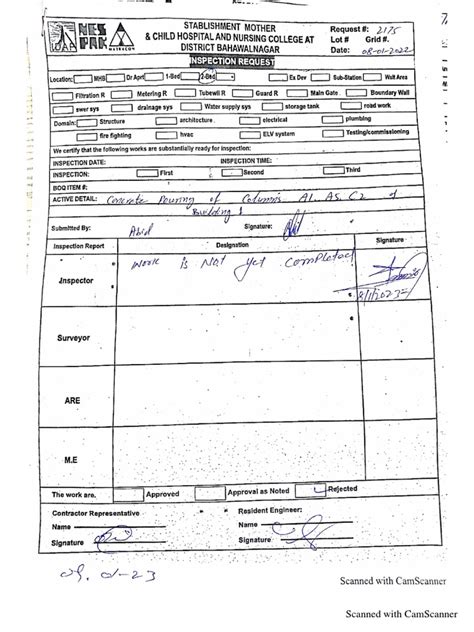 NES
PAK
IDAP
MATRACON
STABLISHMENT MOTHER
& CHILD HOSPITAL AND NURSING COLLEGE AT
DISTRICT BAHAWALNAGAR
Request #: 2175
Lot # Grid #.
Date: 08-01-2022
INSPECTION REQUEST
Location: MHB Dr Aprt 1-Bed 2-Bed Ex Dev Sub-Station Walt Area
Filtration R Metering R Tubewill R Guard R Main Gate Boundary Wall
swer sys drainage sys Water supply sys storage tank road work
Domain: Structure architecture electrical plumbing
fire fighting hvac ELV system Testing/commissioning
We certify that the following works are substantially ready for inspection:
INSPECTION DATE: INSPECTION TIME:
INSPECTION: First Second Third
BOQ ITEM #:
ACTIVE DETAIL: Concrete Pouring of Columns A1, A5, C2 of
Building 1
Submitted By: Abid Signature:
Inspection Report Designation Signature
Inspector work is Not yet completed
8/1/2023
Surveyor
ARE
M.E
The work are. Approved Approval as Noted Rejected
Contractor Representative Resident Engineer:
Name Name
Signature Signature
09.01-23
Scanned with CamScanner
Scanned with CamScanner